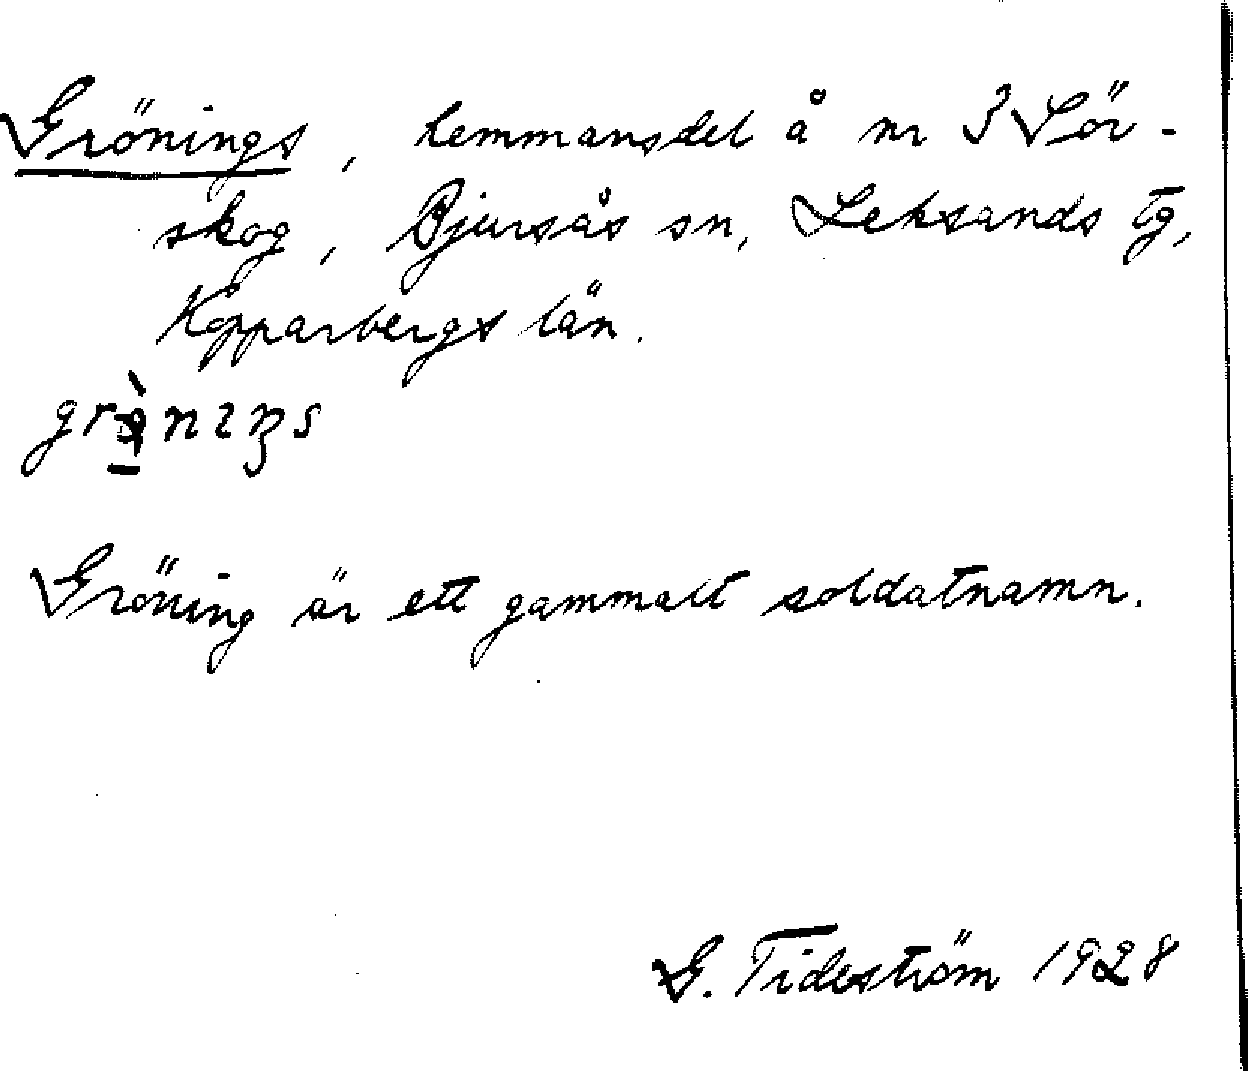 Grönings, hemmansdel å nr 3 Sör-
skog, Bjursås sn, Leksands tg,
Kopparbergs län.
Gröning är ett gammalt soldatnamn.
G. Tideström 1928